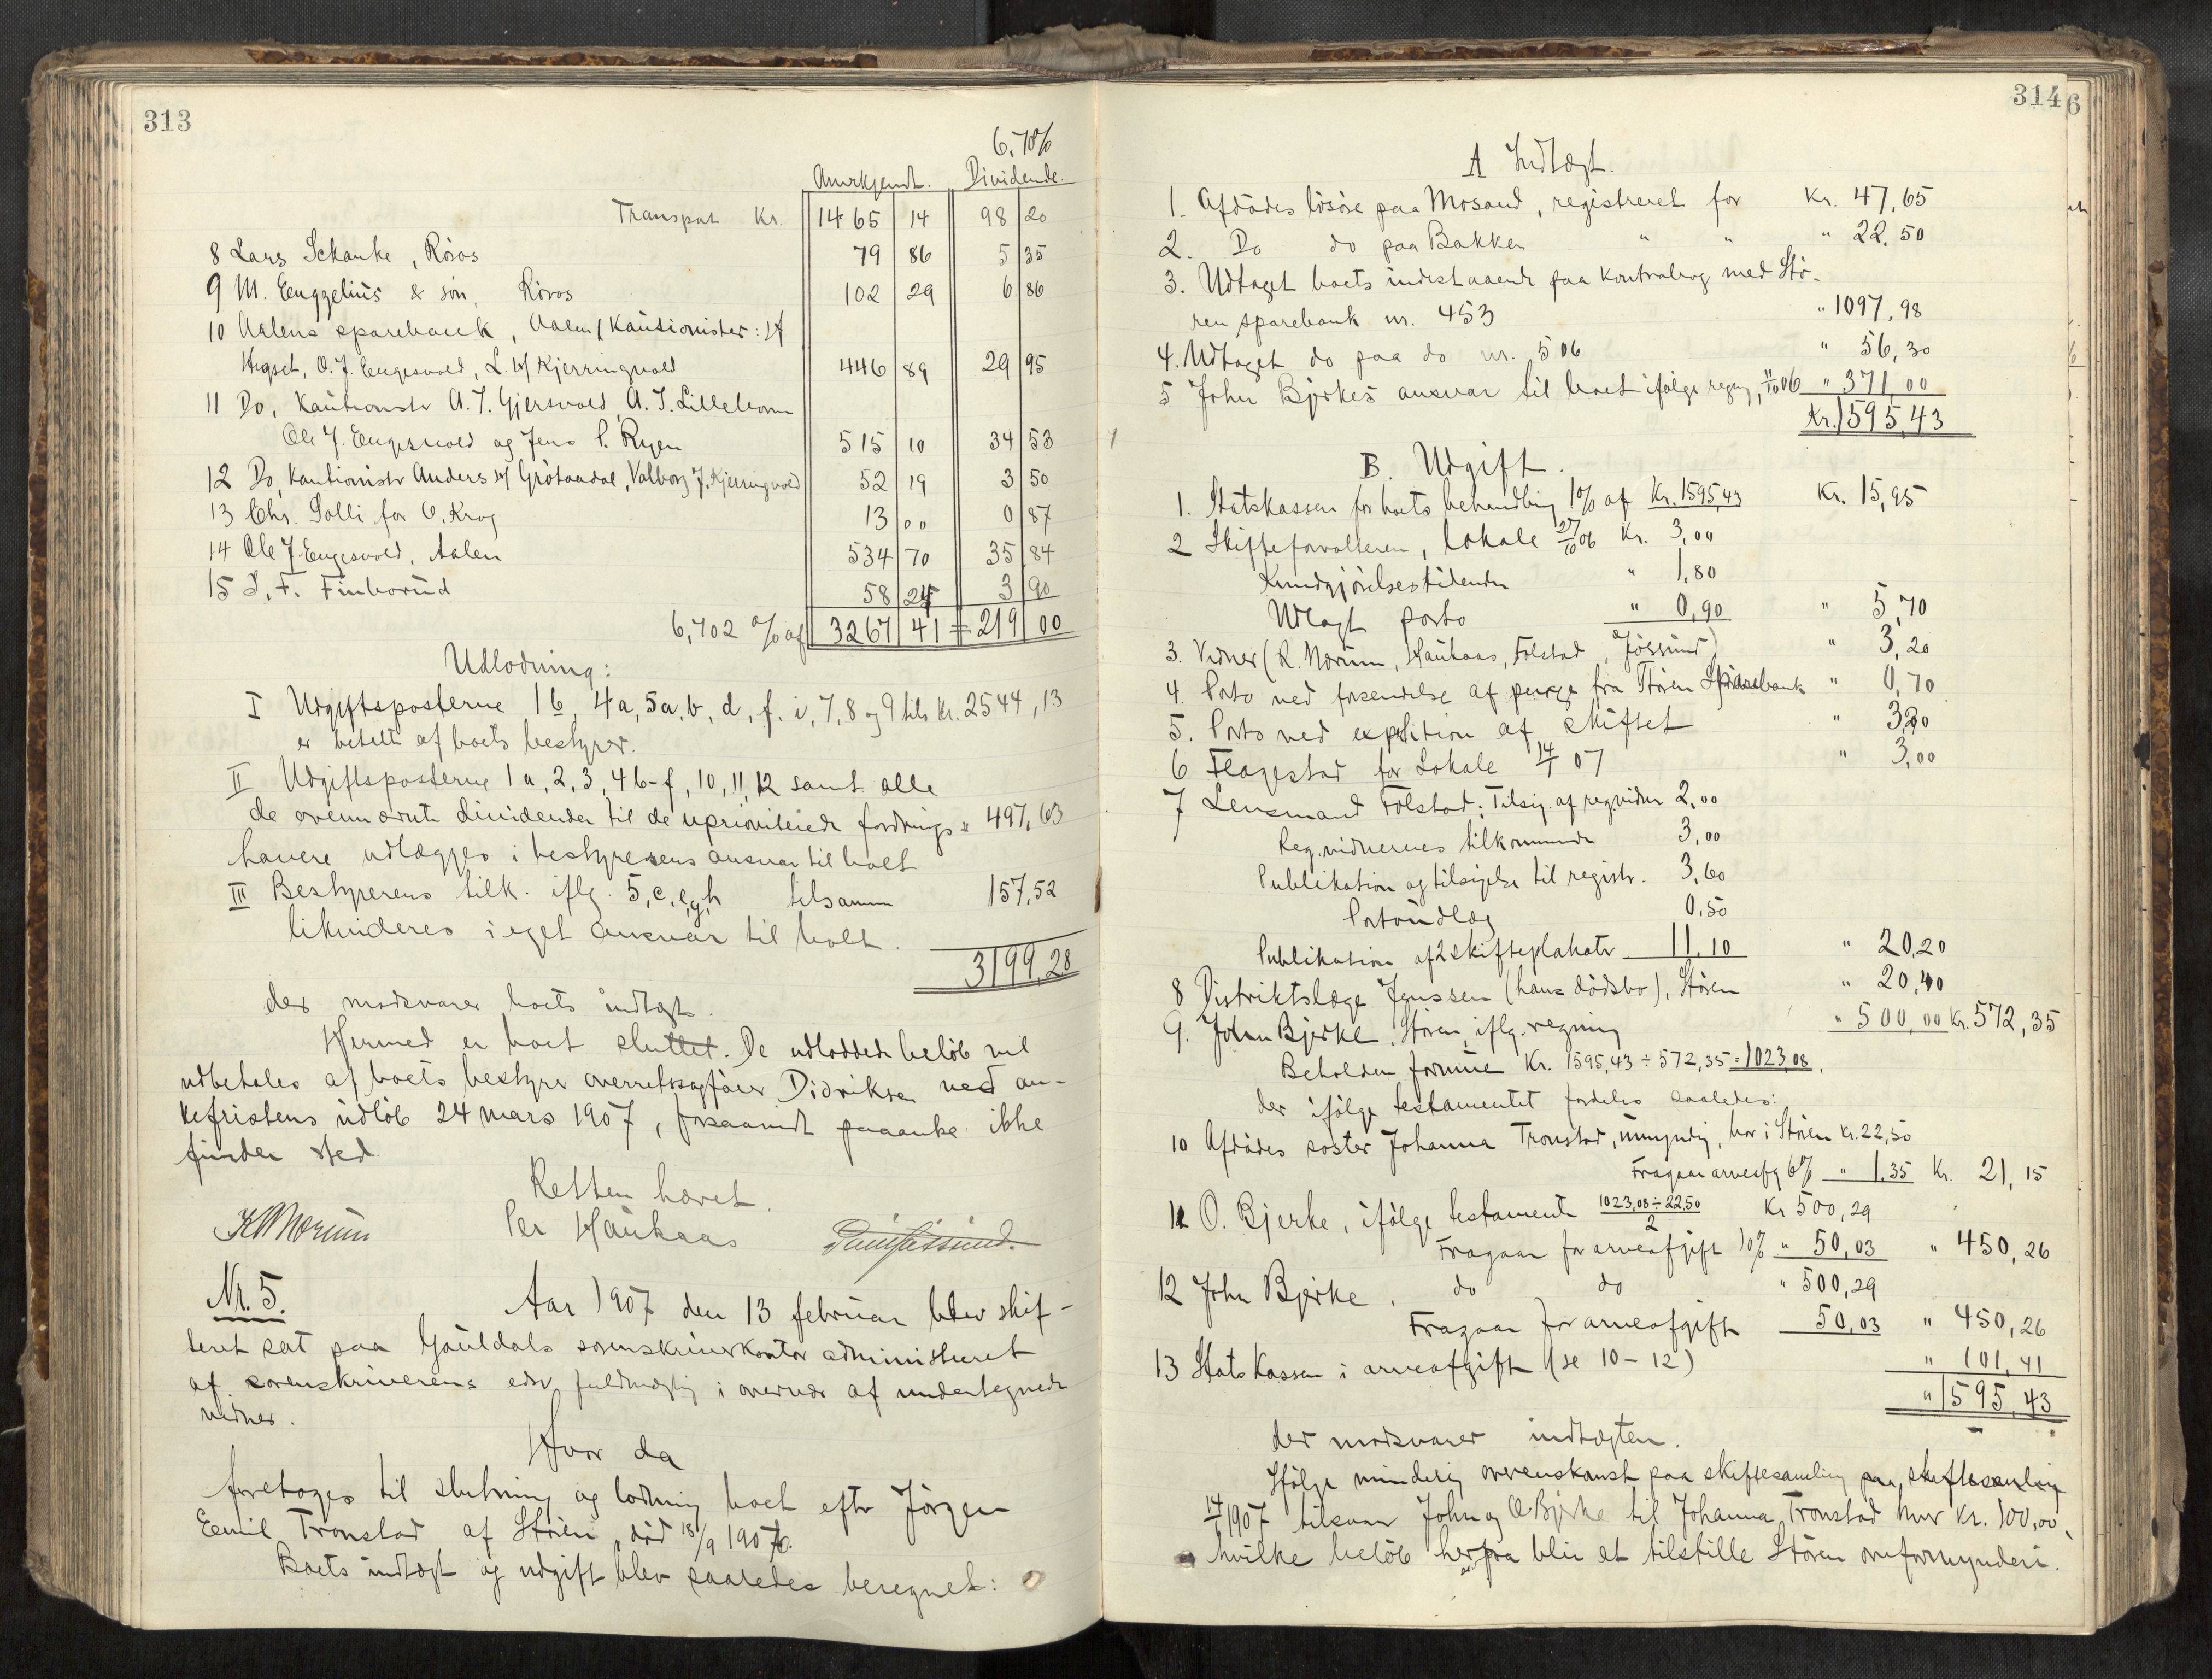 313
6,70%
Anerkjendt. Dividende.
Transport Kr. 1465 14 98 20
8 Lars Schanke, Röros 79 86 5 35
9 M. Engzelius & sön, Röros 102 29 6 86
10 Aalens sparebank, Aalen (Kautionister:
Hegset, O. J. Engesvold, L. Kjerringvold 446 89 29 95
11 Do, Kautionistr A. J. Gjersvold, A. J. Lillehorn
Ole J. Engesvold og Jens P. Ryen 515 10 34 53
12 Do, Kautionistr Anders Grötaadal, Valborg J. Kjerringvold 52 19 3 50
13 Chr. Solli for O. Krog 13 00 0 87
14 Ole J. Engesvold, Aalen 534 70 35 84
15 I. F. Finborud 58 24 3 90
6,702 % af 3267 41 = 219 00
Udlodning:
I Udgiftsposterne 1b, 4a, 5a, b, d, f, i, 7, 8 og 9 tils kr. 2544,13
er betalt af boets bestyrer.
II Udgiftsposterne 1a, 2, 3, 4b-f, 10, 11, 12 samt alle
de ovennævnte dividender til de uprioriterede fordrings- " 497,63
havere udlægges i bestyrerens ansvar til boet
III Bestyrerens tilk. iflg. 5, c, e, g, h tilsammen 157,52
likvideres i eget ansvar til boet.
3199,28
der modsvarer boets indtægt.
Hermed er boet sluttet. De udloddede belöb vil
udbetales af boets bestyrer overretssagförer Didriksen ved an-
kefristens udlöb 24 mars 1907, forsaavidt paaanke ikke
finder sted.
Retten hævet.
K Nórum Per Haukaas
Nr. 5.
Aar 1907 den 13 februar blev skif-
teret sat paa Gauldals sorenskriverkontor administreret
af sorenskriverens edsv. fuldmægtig i overvær af undertegnede
vidner.
Hvor da
foretoges til slutning og lodning boet efter Jörgen
Emil Tronstad af Stören, död 18/9 1906.
Boets indtægt og udgift blev saaledes beregnet:
314
6
A Indtægt.
1. Afdödes lösöre paa Mosand, registreret for Kr. 47,65
2. Do do paa Bakken " " " 22,50
3. Udtaget boets indestaaende paa kontrabog med Stö-
ren sparebank nr. 453 " 1097,98
4. Udtaget do paa do nr. 506 " 56,30
5 John Bjerkes ansvar til boet ifölge regng, 11/10 06 " 371,00
Kr. 1595,43
B. Udgift.
1. Statskassen for boets behandling 1% af Kr. 1595,43 Kr. 15,95
2 Skifteforvalteren, lokale 27/10 06 Kr. 3,00
Kundgjörelsestidende " 1,80
Udlagt porto " 0,90 " 5,70
3. Vidner (K. Nórum, Haukaas, Folstad, Jössund) " 3,20
4. Porto ved forsendelse af penge fra Stören Sparebank " 0,70
5. Porto ved expedition af skiftet " 3,20
6 Flagestad for Lokale 14/1 07 " 3,00
7 Lensmand Folstad: Tilsig. af reg.vidner 2,00
Reg.vidnernes tilkommende 3,00
Publikation og tilsigelse til registr. 3,60
Portoudlæg 0,50
Publikation af 2 skifteplakater 11,10 " 20,20
8 Distriktslæge Jenssen (hans dödsbo), Stören " 20,40
9. John Bjerke, Stören, iflg. regning " 500,00 Kr. 572,35
Beholden formue Kr. 1595,43 ÷ 572,35 = 1023,08,
der ifölge testamentet fordeles saaledes:
10 Afdödes söster Johanna Tronstad, umyndig, bor i Stören Kr. 22,50
Fragaar arveafg 6% " 1,35 Kr. 21,15
11 O. Bjerke, ifölge testamente 1023,08 ÷ 22,50 / 2 Kr 500,29
Fragaar for arveafgift 10% " 50,03 " 450,26
12 John Bjerke, do do " 500,29
Fragaar for arveafgift 50,03 " 450,26
13 Statskassen i arveafgift (se 10-12) " 101,41
" 1595,43
der modsvarer indtægten.
Ifölge mindelig overenskomst paa skiftesamling paa skiftesamling
14/1 1907 tilsvarer John og O Bjerke til Johanna Tronstad hver Kr. 100,00,
hvilke belöb herfra blir at tilstille Stören overformynderi.